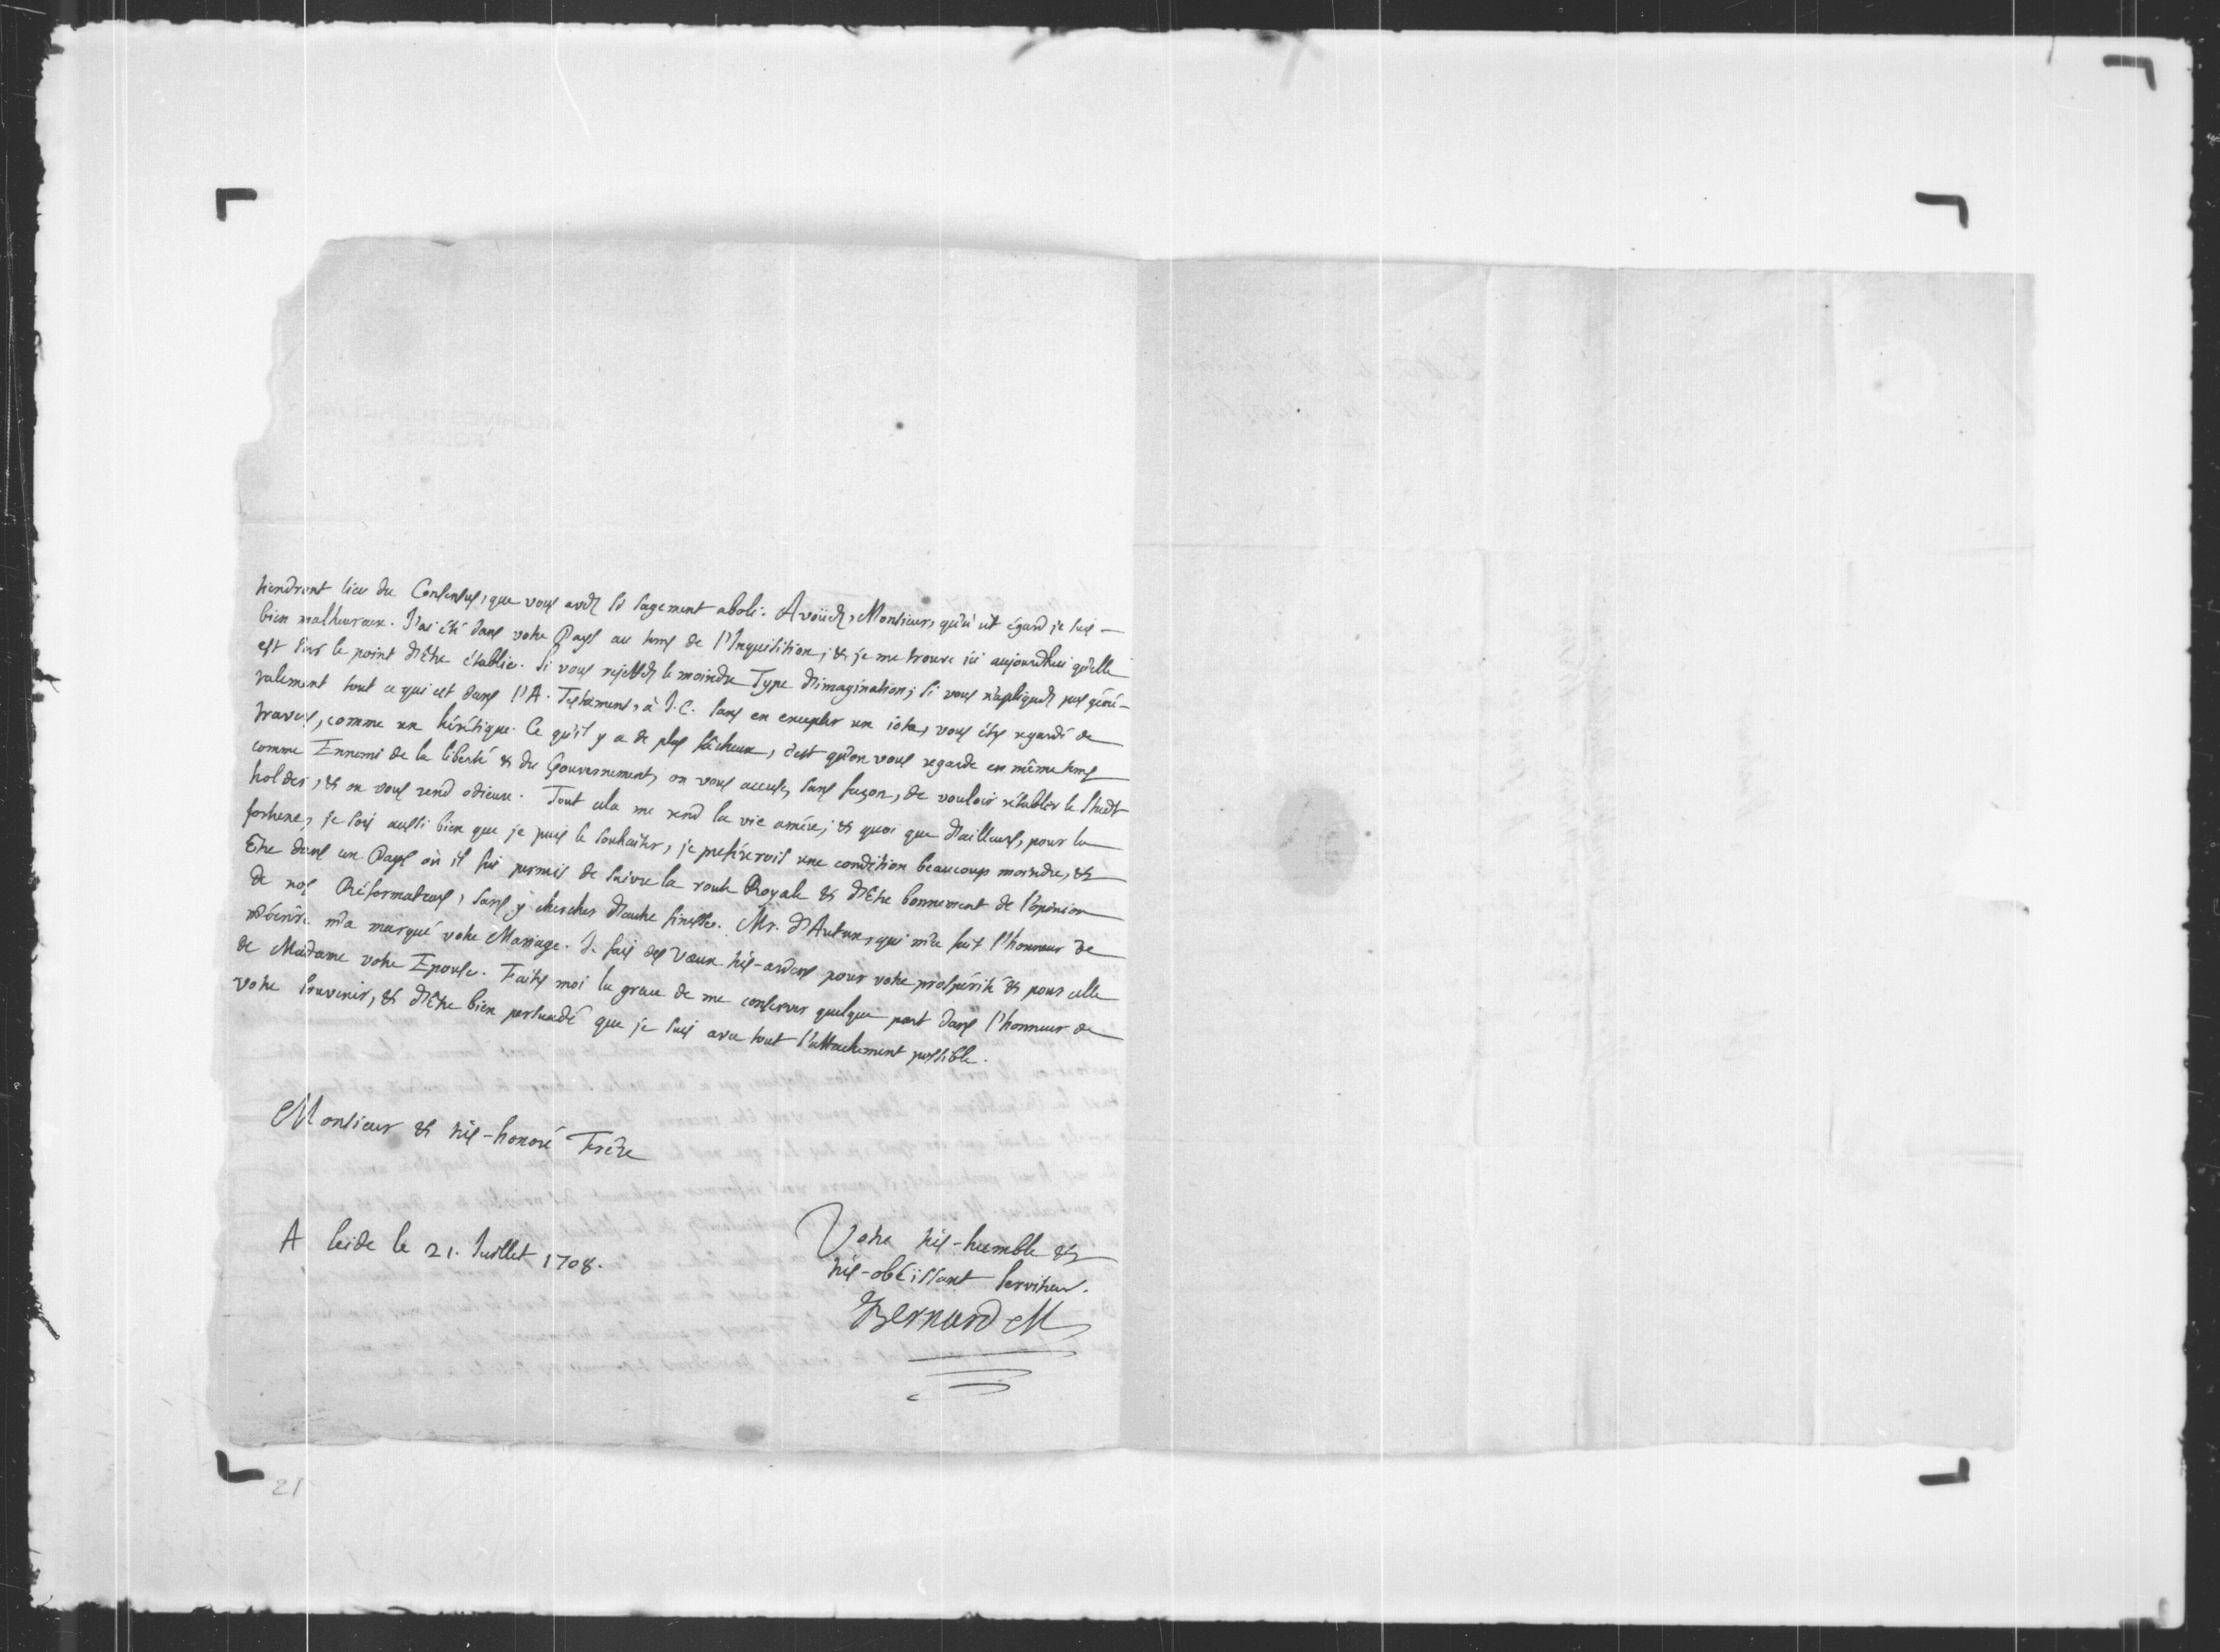 tiendront lieu du Consensus, que vous avez si sagement aboli. Avoüez, Monsieur, qu'à cet égard je suis
bien malheureux. J'ai été dans votre Pays au tems de l'Inquisition, & je me trouve ici aujourdhui qu'elle
est sur le point d'être établie. Si vous rejettez le moindre Type d'imagination; si vous n'apliquez pas géné-
ralement tout ce qui est dans l'A. Testament, à J.C. sans en excepter un iota, vous êtes regardé de
travers, comme un hérétique. Ce qu'il y a de plus fâcheux, c'est qu'on vous regarde en même tems
comme Ennemi de la liberté & du Gouvernement, on vous accuse, sans façon, de vouloir rétablir le Stadt
holder, & on vous rend odieux. Tout cela me rend la vie amére; & quoi que d'ailleurs, pour la
fortune, je sois aussi bien que je puis le souhaiter, je préférerois une condition beaucoup moindre, &
Etre dans un Pays où il fut permis de suivre la route Royale & d'être bonnement de l'opinion
de nos Réformateurs, sans y chercher d'autre finesse. Mr. d'Autun, qui m'a fait l'honneur de
m'écrire m'a marqué votre Mariage. Je fais des Vœux très-ardens pour votre prospérité & pour celle
de Madame votre Epouse. Faites moi la grace de me conserver quelque part dans l'honneur de
votre souvenir, & d'être bien persuadé que je suis avec tout l'attachement possible.
Monsieur & très-honoré Frére
A Leide le 21. Juillet 1708.
Votre très-humble &
très-obéissant serviteur.
Bernard M
21